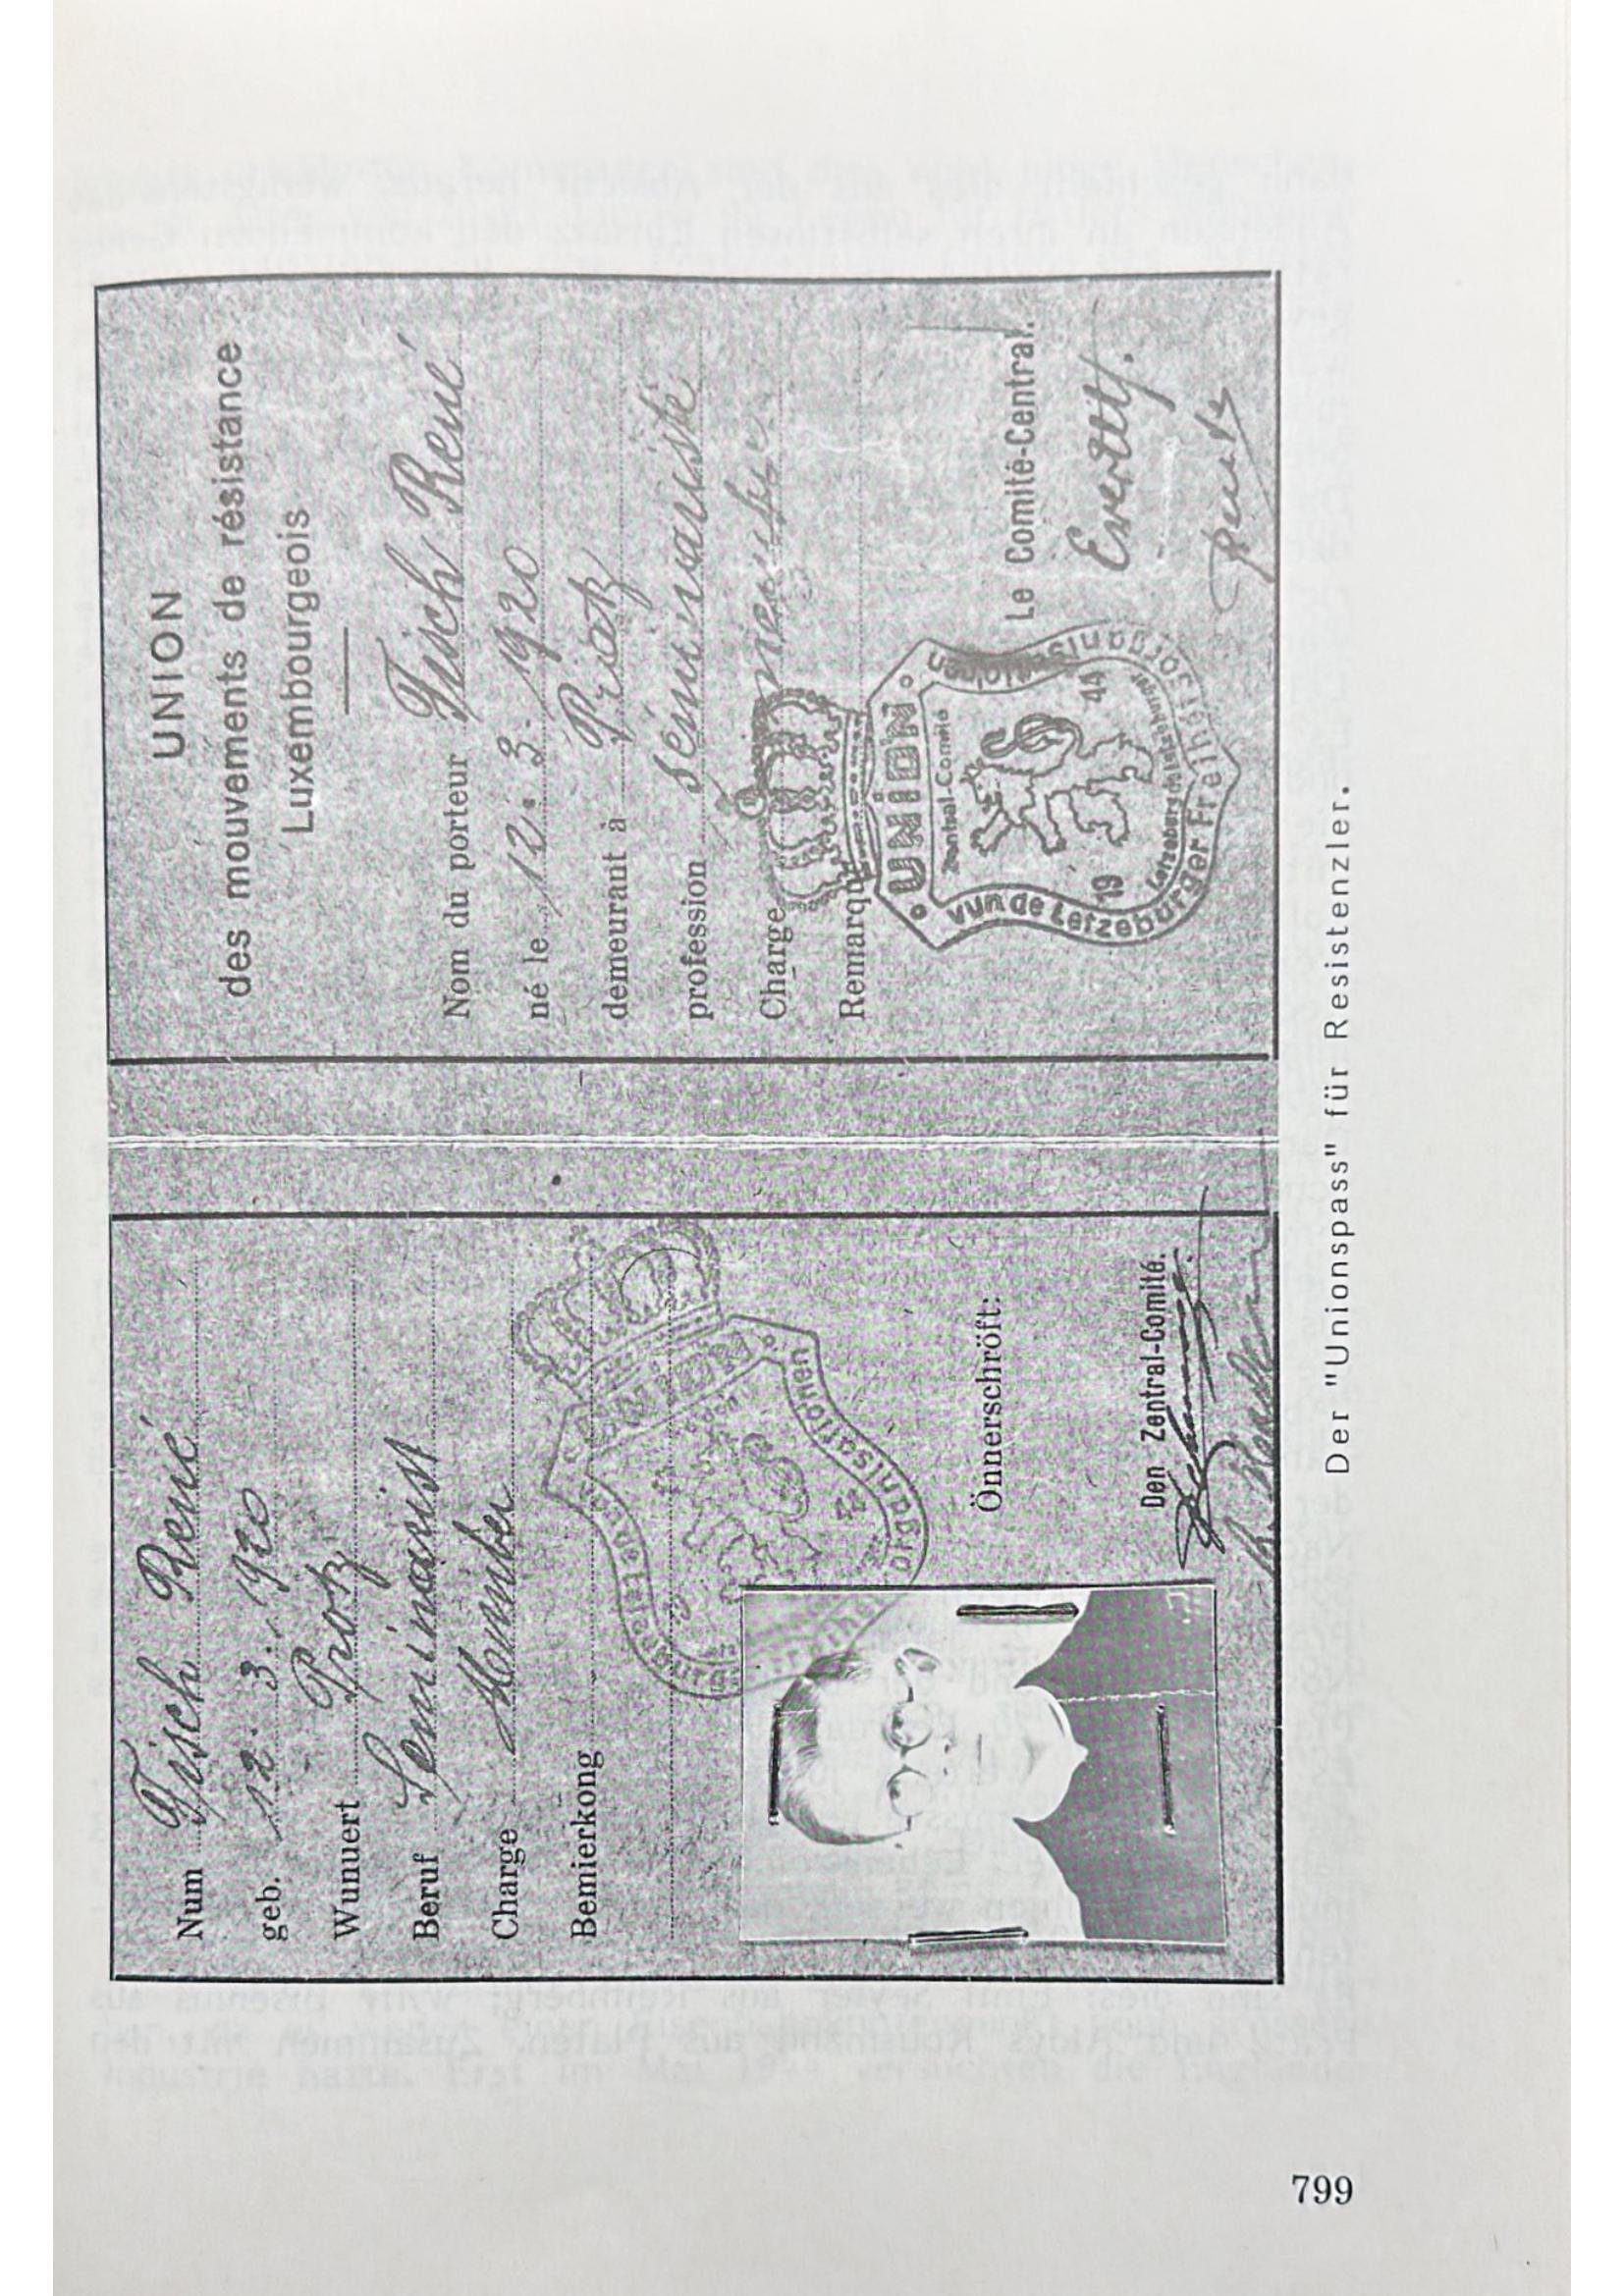 Num Fisch René
geb. 12. 3. 1920
Wunuert Pratz
Beruf Seminarist
Charge Member
Bemierkong
Organisatiounen
Önnerschröft:
Den Zentral-Comité.
UNION
des mouvements de résistance
Luxembourgeois
Nom du porteur Fisch René
né le 12. 3. 1920
demeurant à Pratz
profession séminariste
Charge membre
Remarque
UNION
Zentral-Comité
19 44
Letzeburg de Letzeburger
vun de Letzeburger Freiheitsorganisatiounen
Le Comité-Central.
Der "Unionspass" für Resistenzler.
799